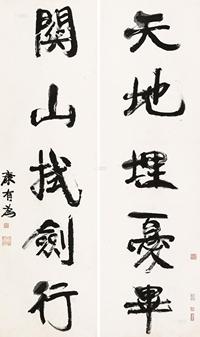 天地埋憂畢
關山拭劍行
康有為